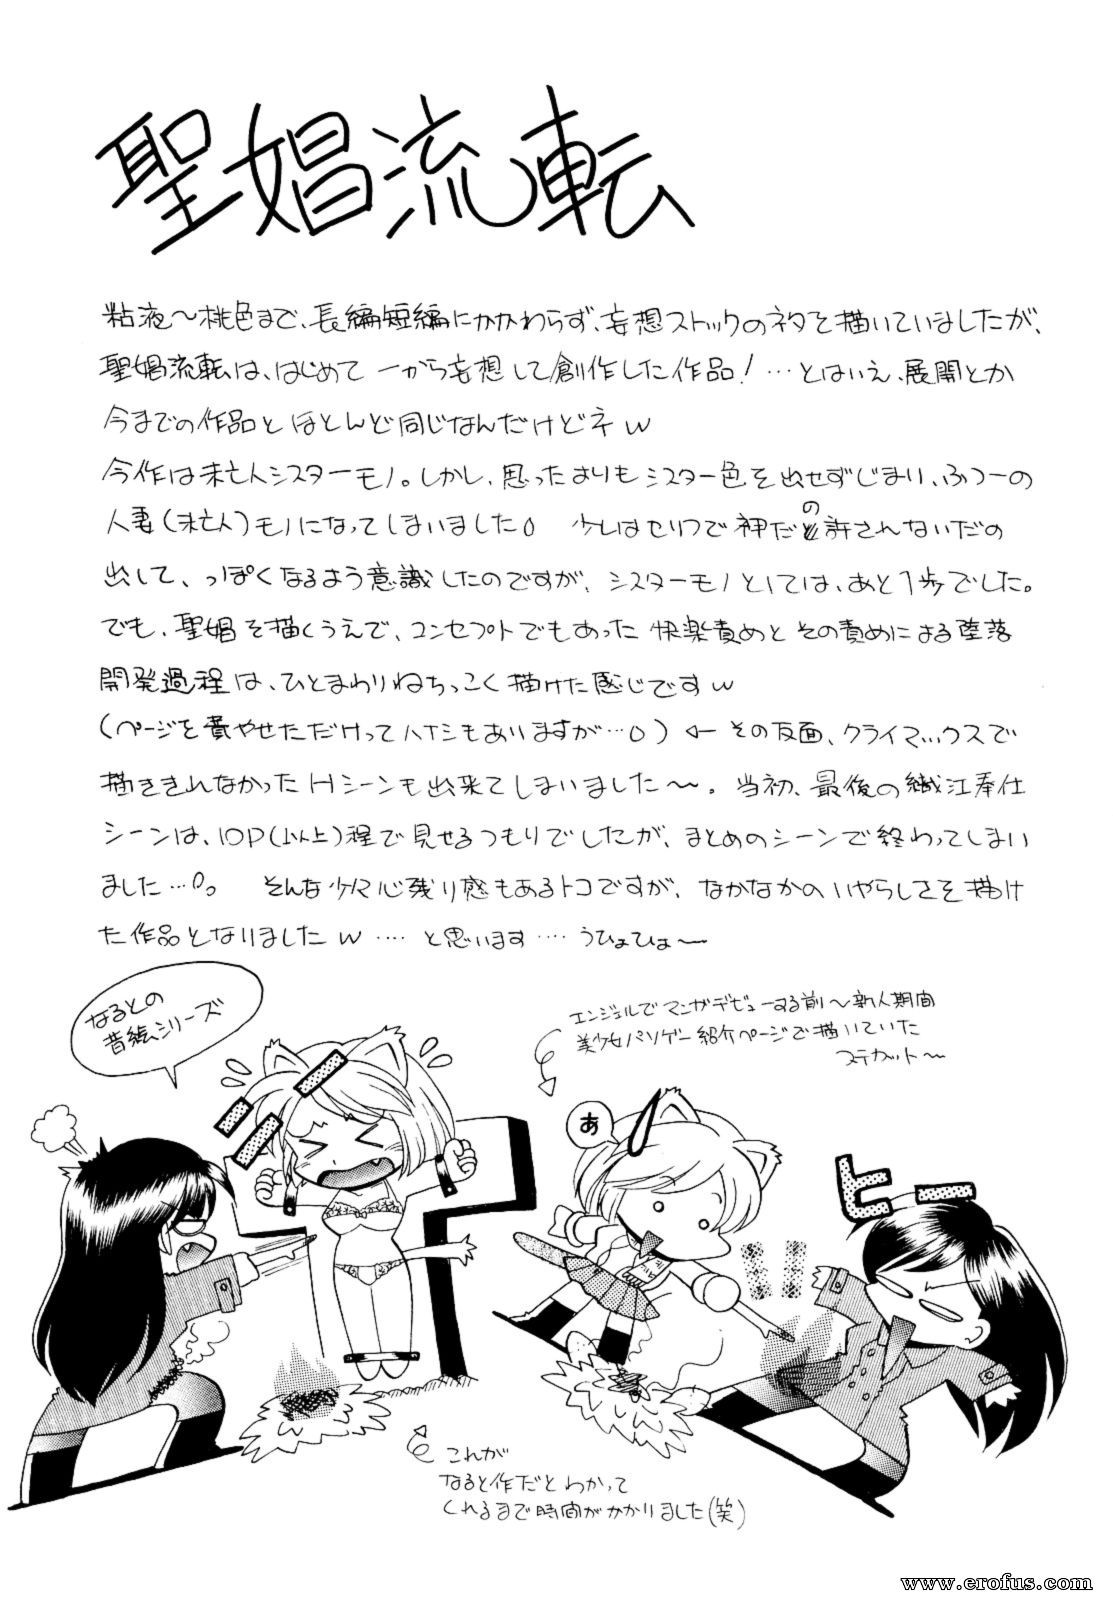 聖娼流転
粘液～桃色まで、長編短編にかかわらず、妄想ストックのネタを描いていましたが、
聖娼流転は、はじめて一から妄想して創作した作品！…とはいえ、展開とか
今までの作品とほとんど同じなんだけどネw
今作は未亡人シスターモノ。しかし、思ったよりもシスター色を出せずじまい、ふつーの
人妻(未亡人)モノになってしまいました 少しはセリフで神だの許されないだの
出して、っぽくなるよう意識したのですが、シスターモノとしては、あと1歩でした。
でも、聖娼を描くうえで、コンセプトでもあった快楽責めとその責めによる堕落
開発過程は、ひとまわりねちっこく描けた感じですw
(ページを費やせただけってハナシもありますが…) ← その反面、クライマックスで
描ききれなかったHシーンも出来てしまいました～。当初、最後の織江奉仕
シーンは、10P(以上)程で見せるつもりでしたが、まとめのシーンで終わってしまい
ました… そんな少々心残り感もあるトコですが、なかなかのいやらしさを描け
た作品となりましたw …. と思います…. うひょひょ～
なるとの
昔絵シリーズ
エンジェルでマンガデビューする前～新人期間
美少女パソゲー紹介ページで描いていた
ステカット～
あ
ヒー
これが
なると作だとわかって
くれるまで時間がかかりました(笑)
www.erofus.com